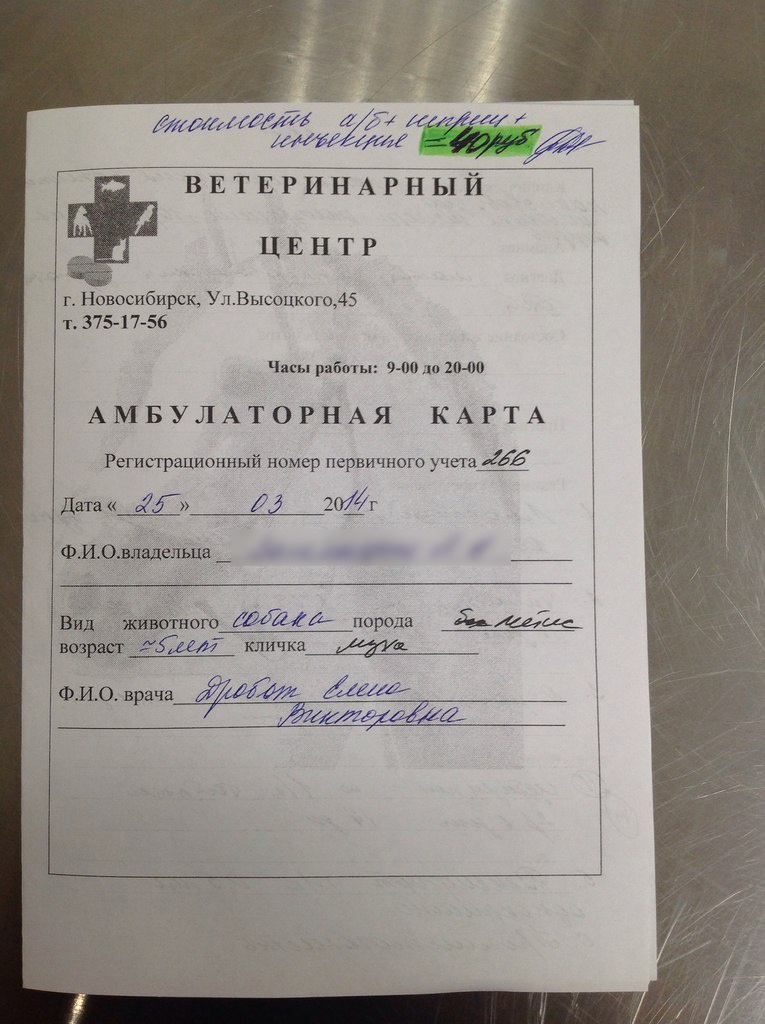 стоимость а/б + шприц +
инъекция = 40 руб
ВЕТЕРИНАРНЫЙ
ЦЕНТР
г. Новосибирск, Ул.Высоцкого,45
т. 375-17-56
Часы работы: 9-00 до 20-00
АМБУЛАТОРНАЯ КАРТА
Регистрационный номер первичного учета 266
Дата « 25 » 03 2014 г
Ф.И.О.владельца
Вид животного собака порода метис
возраст ≈5лет кличка муха
Ф.И.О. врача Дробот Елена
Викторовна